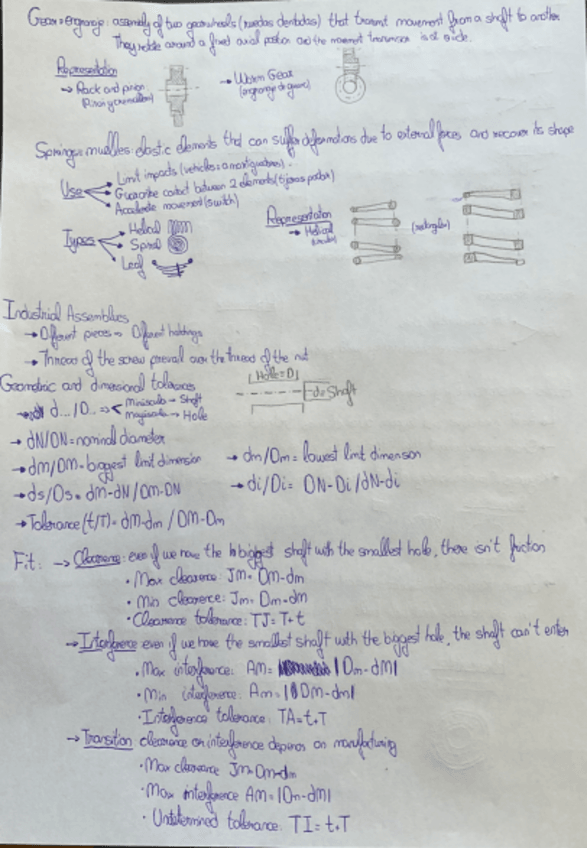 Gears = engranaje: assembly of two gearwheels (ruedas dentadas) that transmit movement from a shaft to another
They rotate around a fixed axial position and the movement transmission is at side.
Representation
→ Rack and pinion
(Pinon y cremallera)
→ Worm Gear
(engranaje de gusano)
Springs = muelles: elastic elements that can suffer deformations due to external forces and recover its shape
Use
Limit impacts (vehicles = amortiguadores).
Guarantee contact between 2 elements (tijeras podar)
Accelerate movement (switch)
Types
Helical
Spiral
Leaf
Representation
→ Helical
(circular)
(rectangular)
Industrial Assemblies
→ Different pieces → Different hatchings
→ Thread of the screw prevail over the thread of the nut
Geometric and dimensional tolerances
→ d.../D... →
Miniscula → Shaft
Mayuscula → Hole
Hole = D
d = Shaft
→ dN/DN = nominal diameter
→ dM/DM = biggest limit dimension
→ dm/Dm = lowest limit dimension
→ ds/Ds = dM-dN/DM-DN
→ di/Di = DN-Di/dN-di
→ Tolerance (t/T) = dM-dm / DM-Dm
Fit: → Clearence: even if we have the biggest shaft with the smallest hole, there isn't friction
• Max clearence: JM = DM-dm
• Min clearence: Jm = Dm-dM
• Clearence tolerance: TJ = T+t
→ Interference even if we have the smallest shaft with the biggest hole, the shaft can't enter
• Max interference: AM = |Dm-dM|
• Min interference: Am = |DM-dm|
• Interference tolerance: TA = t+T
→ Transition clearence or interference depends on manufacturing
• Max clearance JM = DM-dm
• Max interference AM = |Dm-dM|
• Undetermined tolerance: TI = t+T